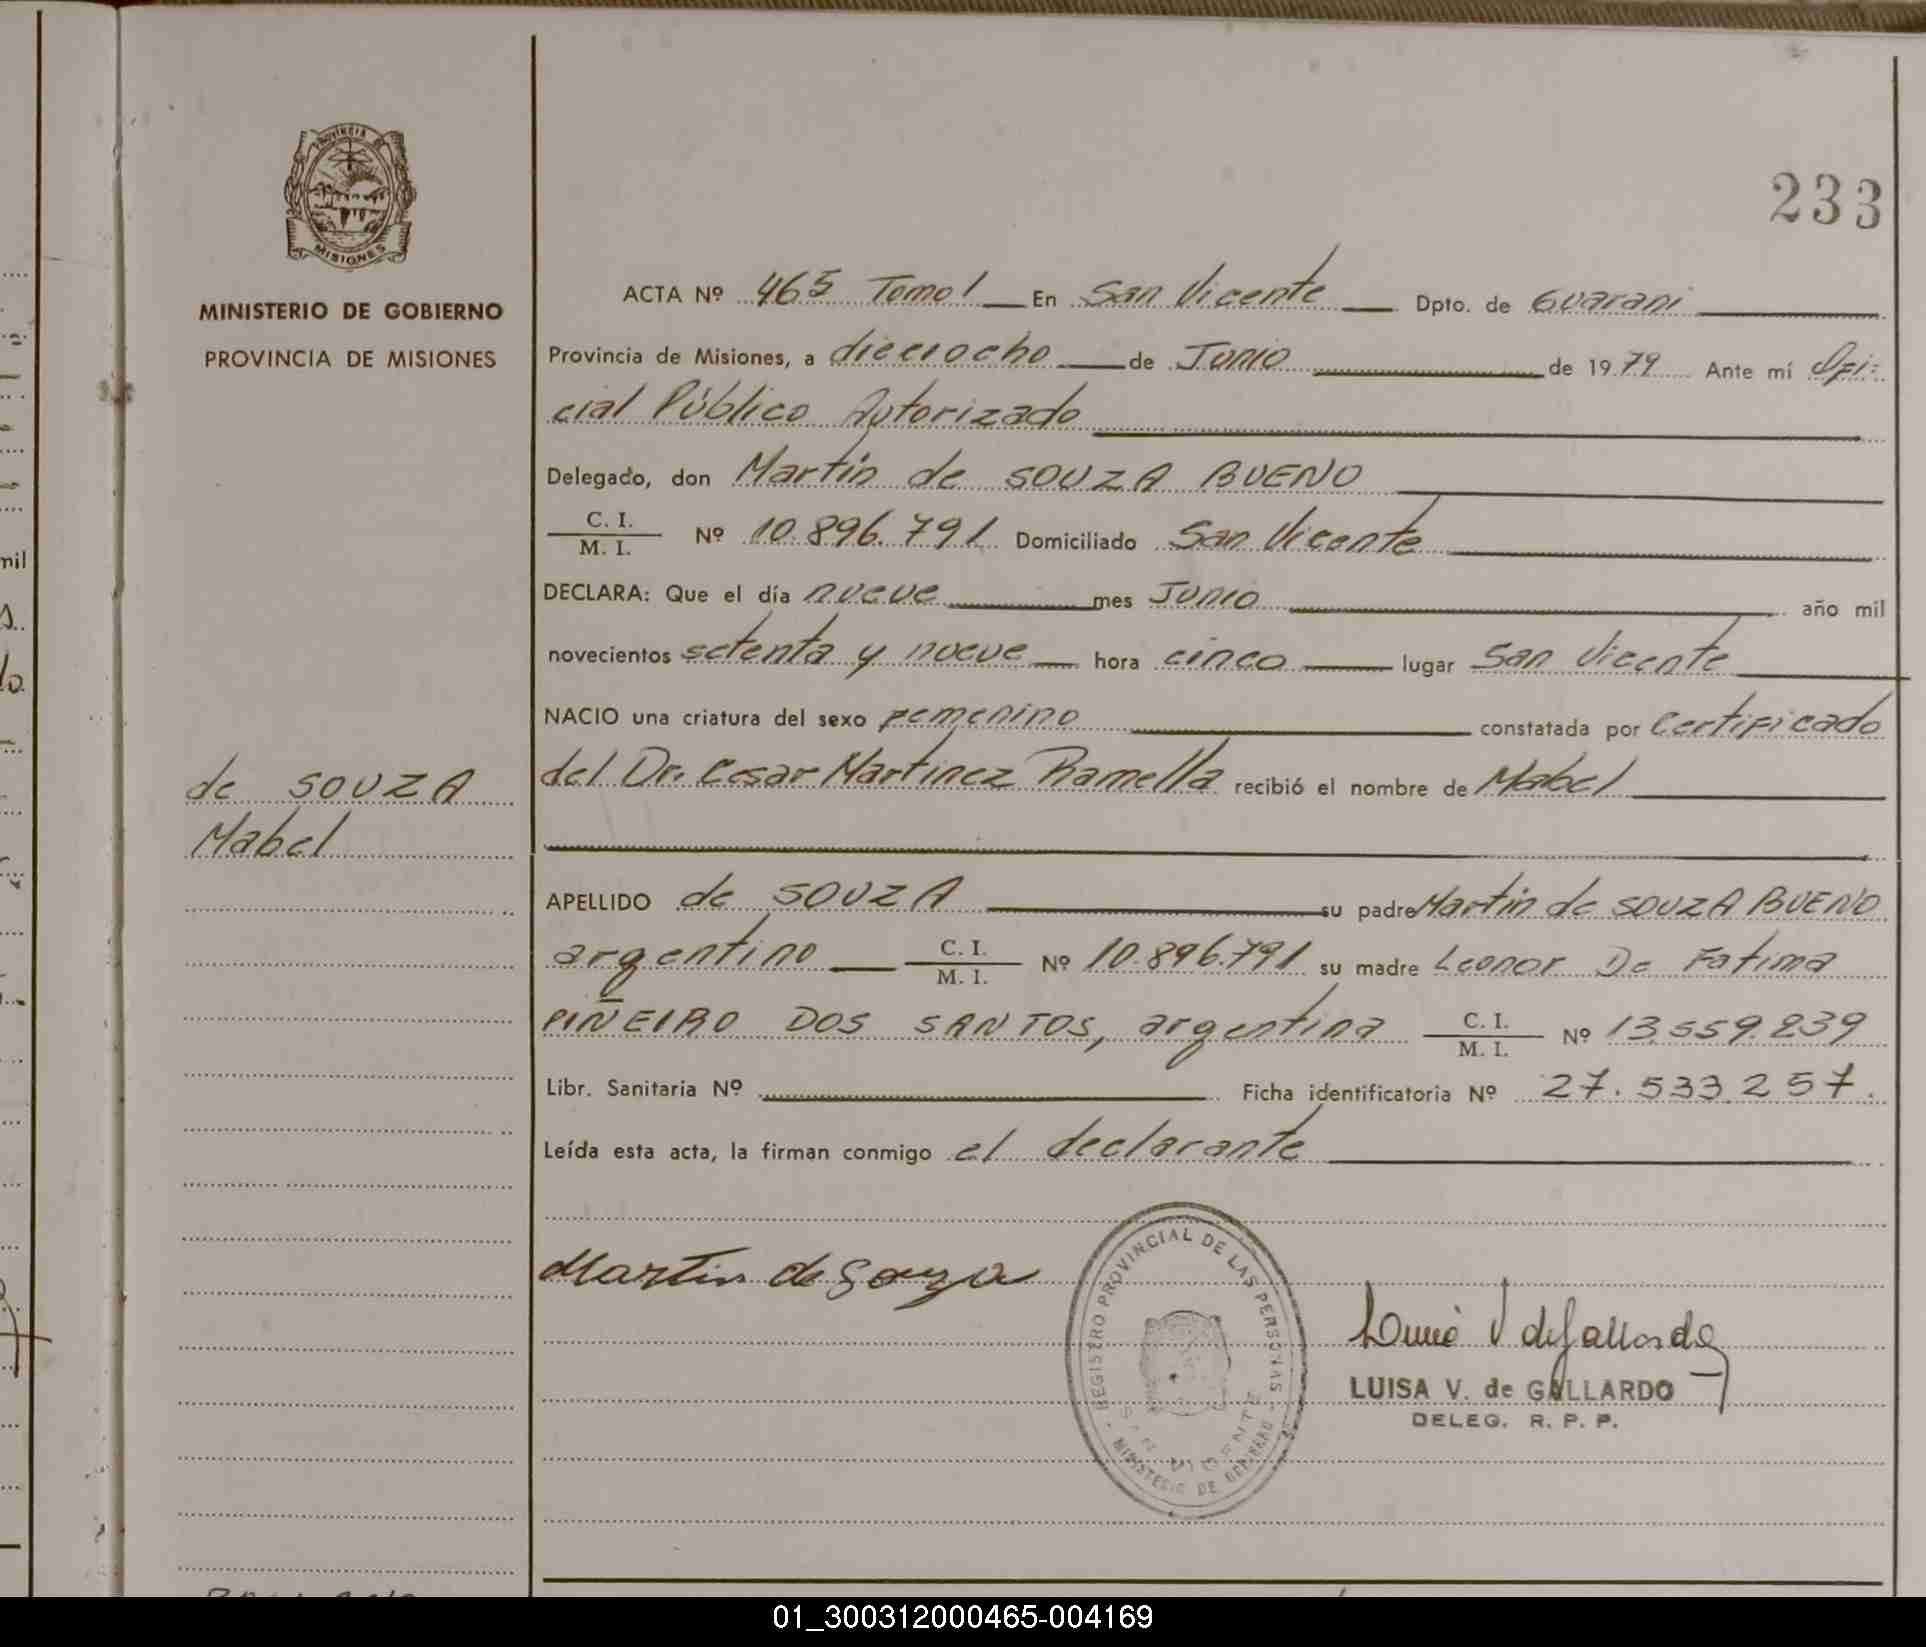 233
PROVINCIA DE
MISIONES
MINISTERIO DE GOBIERNO
PROVINCIA DE MISIONES
de SOUZA
Mabel
ACTA Nº 465 Tomo I En San Vicente Dpto. de Guarani
Provincia de Misiones, a dieciocho de Junio de 1979 Ante mí Ofi-
cial Público Autorizado
Delegado, don Martin de SOUZA BUENO
C. I. / M. I. Nº 10.896.791 Domiciliado San Vicente
DECLARA: Que el día nueve mes Junio año mil
novecientos setenta y nueve hora cinco lugar San Vicente
NACIO una criatura del sexo femenino constatada por Certificado
del Dr. Cesar Martinez Ramella recibió el nombre de Mabel
APELLIDO de SOUZA su padre Martin de SOUZA BUENO
argentino C. I. / M. I. Nº 10.896.791 su madre Leonor De Fatima
PIÑEIRO DOS SANTOS, argentina C. I. / M. I. Nº 13.559.839
Libr. Sanitaria Nº Ficha identificatoria Nº 27.533.257.
Leída esta acta, la firman conmigo el declarante
Martin de Souza
REGISTRO PROVINCIAL DE LAS PERSONAS
SAN VICENTE
MINISTERIO DE GOBIERNO
Luisa V de Gallardo
LUISA V. de GALLARDO
DELEG. R. P. P.
01_300312000465-004169